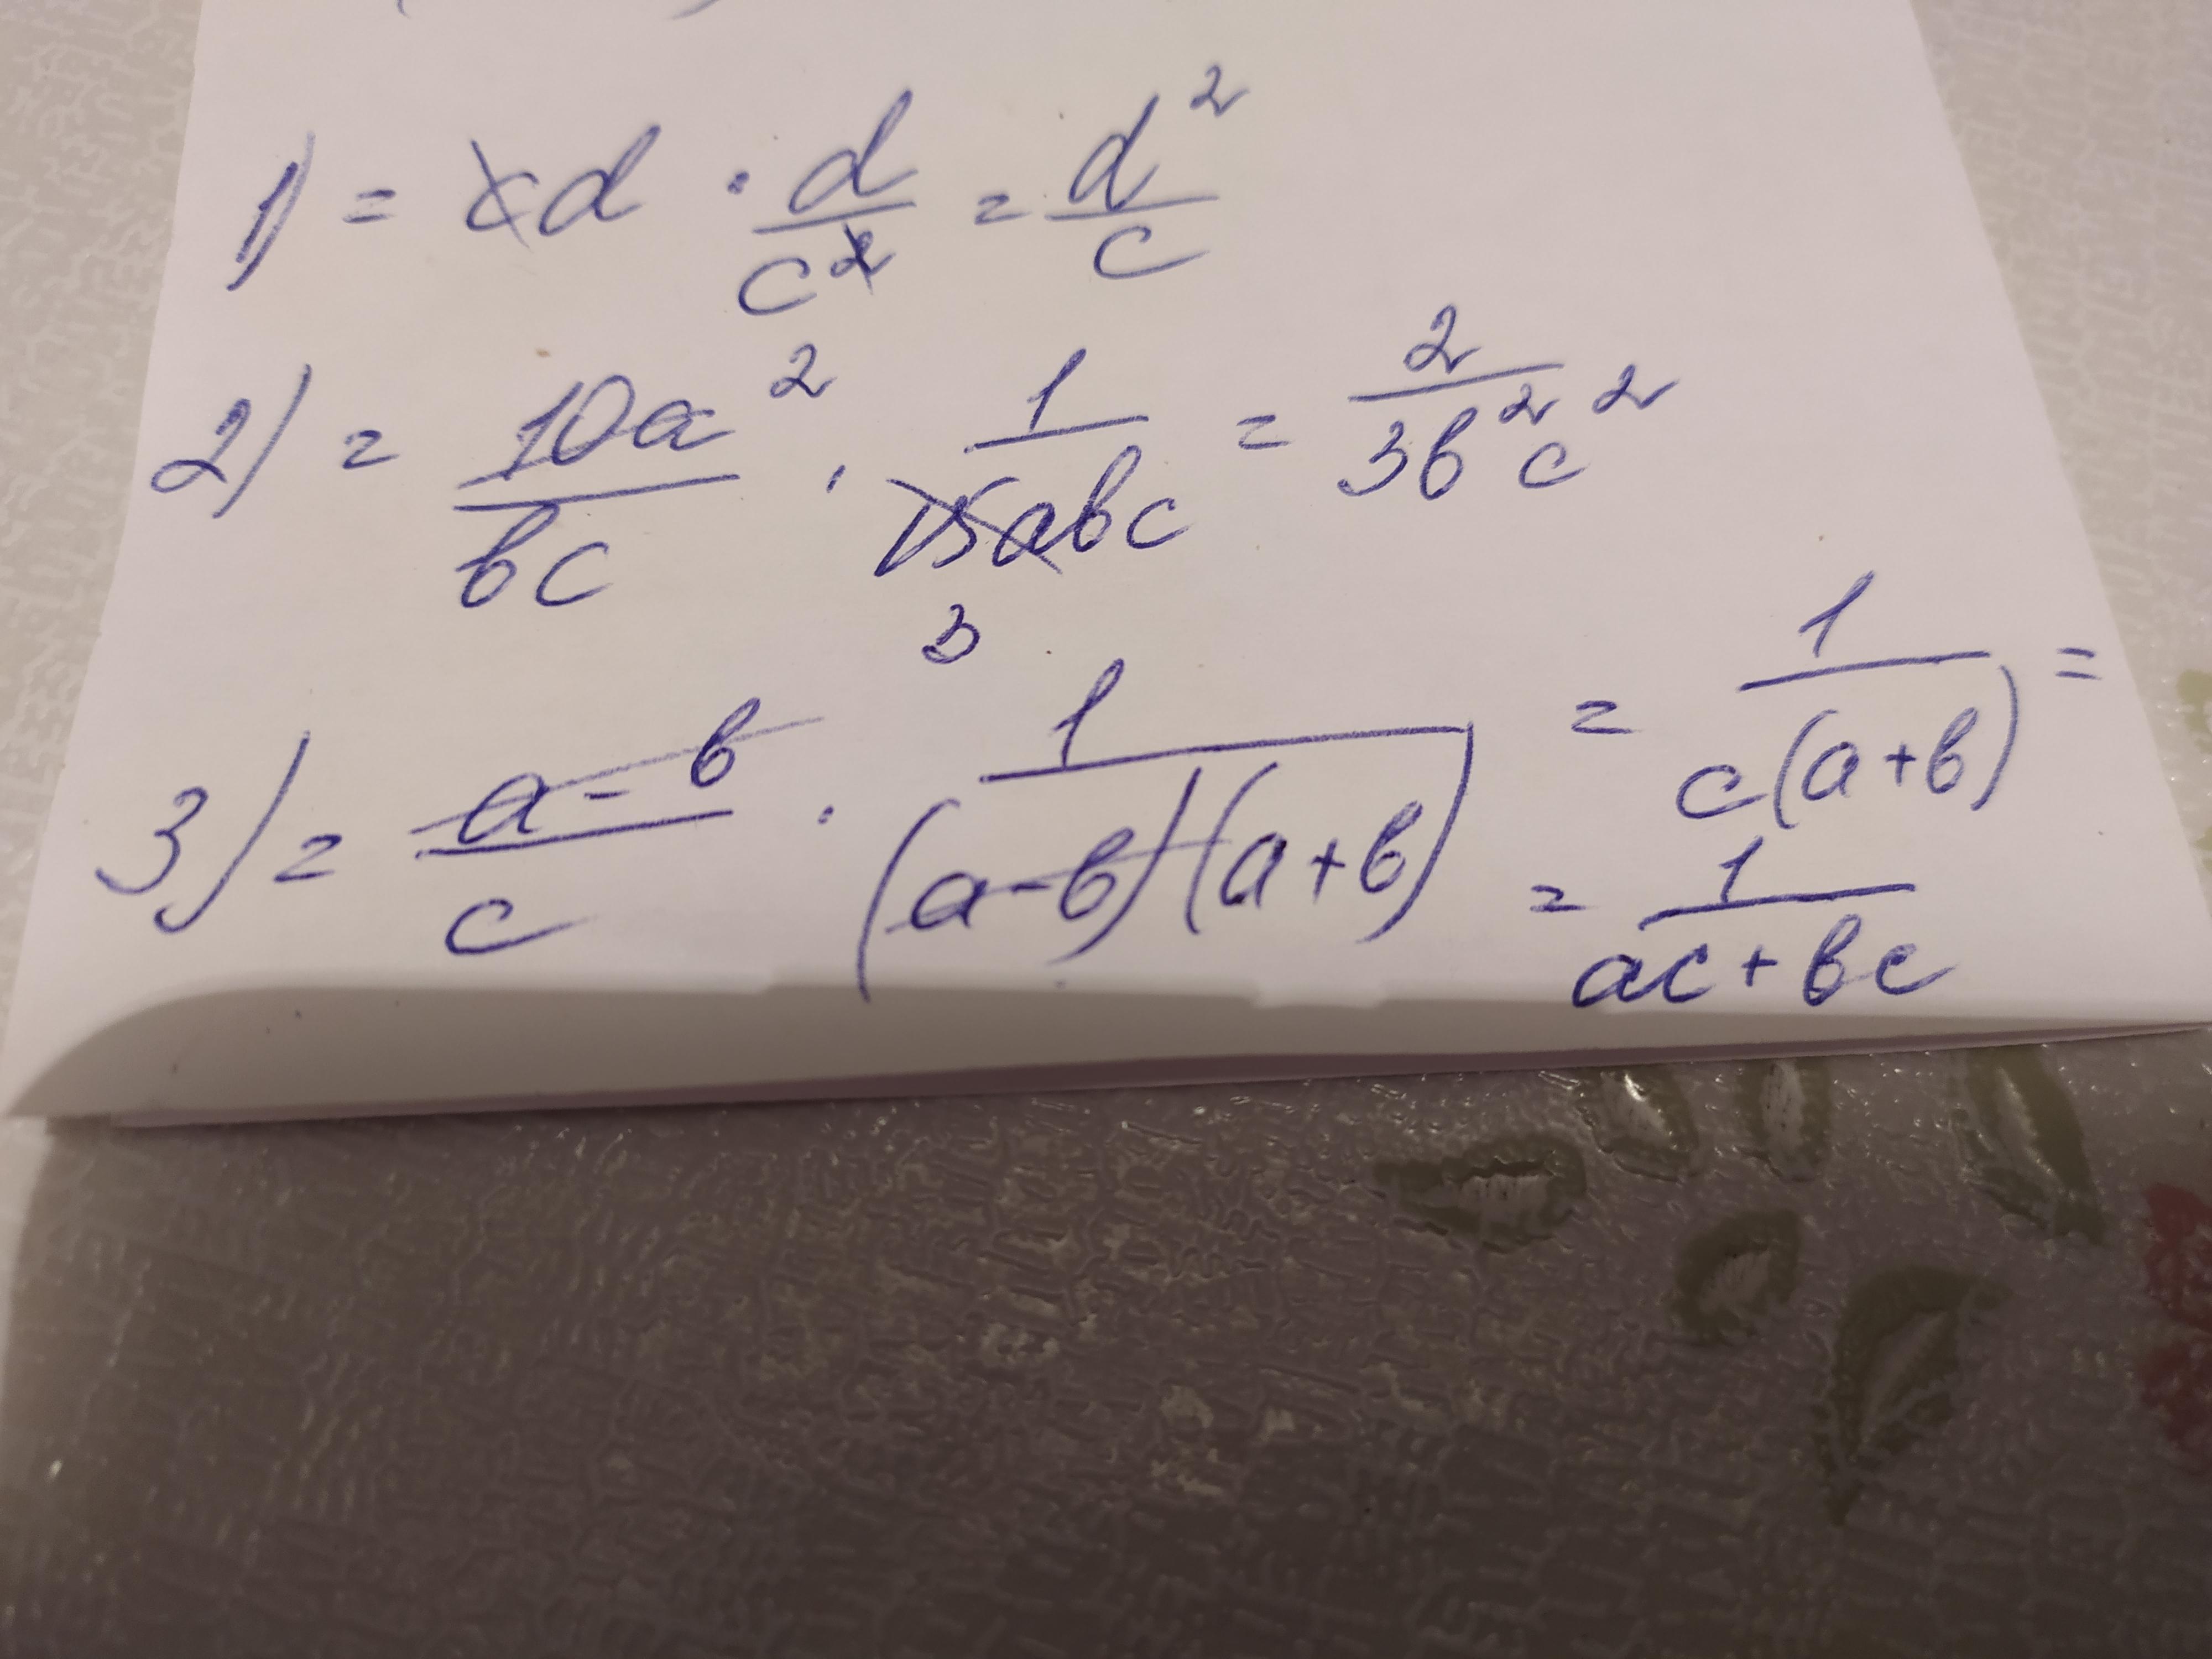 1) = cd · d/c² = d²/c
2) = 10a²/bc · 1/15abc = 2/3b²c²
3
3) = a-b/c · 1/(a-b)(a+b) = 1/c(a+b) =
= 1/ac+bc